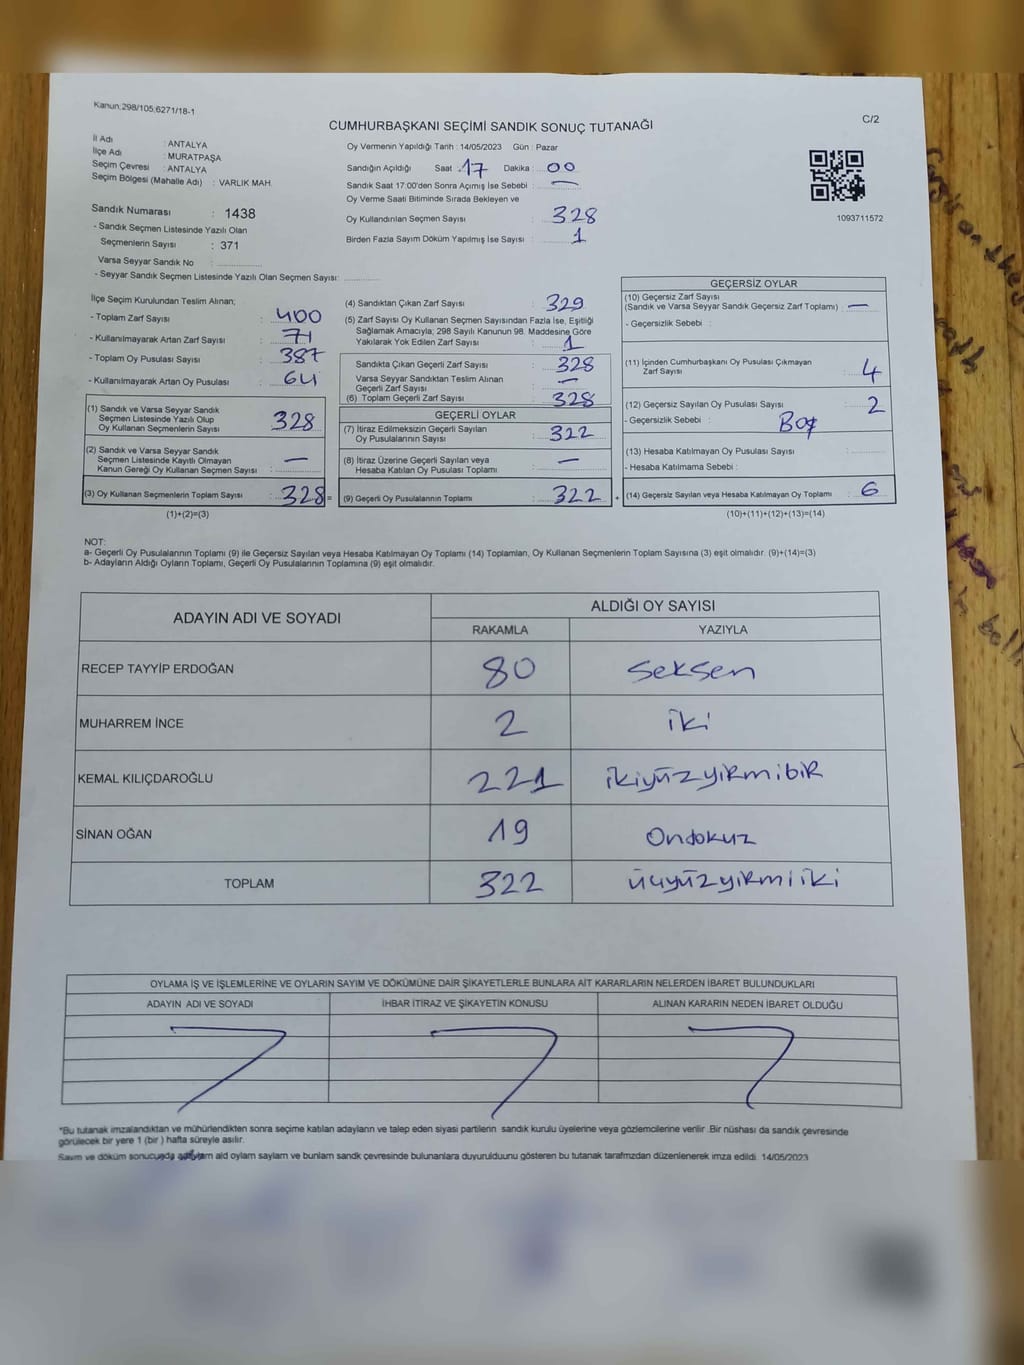 Kanun:298/105;6271/18-1
C/2
CUMHURBAŞKANI SEÇİMİ SANDIK SONUÇ TUTANAĞI
İl Adı : ANTALYA
İlçe Adı : MURATPAŞA
Seçim Çevresi : ANTALYA
Seçim Bölgesi (Mahalle Adı) : VARLIK MAH.
Sandık Numarası : 1438
- Sandık Seçmen Listesinde Yazılı Olan
Seçmenlerin Sayısı : 371
Varsa Seyyar Sandık No :
- Seyyar Sandık Seçmen Listesinde Yazılı Olan Seçmen Sayısı:
Oy Vermenin Yapıldığı Tarih : 14/05/2023 Gün : Pazar
Sandığın Açıldığı Saat : 17 Dakika : 00
Sandık Saat 17:00'den Sonra Açılmış İse Sebebi : —
Oy Verme Saati Bitiminde Sırada Bekleyen ve
Oy Kullandırılan Seçmen Sayısı : 328
Birden Fazla Sayım Döküm Yapılmış İse Sayısı : 1
1093711572
İlçe Seçim Kurulundan Teslim Alınan;
- Toplam Zarf Sayısı : 400
- Kullanılmayarak Artan Zarf Sayısı : 71
- Toplam Oy Pusulası Sayısı : 387
- Kullanılmayarak Artan Oy Pusulası : 64
(1) Sandık ve Varsa Seyyar Sandık
Seçmen Listesinde Yazılı Olup
Oy Kullanan Seçmenlerin Sayısı : 328
(2) Sandık ve Varsa Seyyar Sandık
Seçmen Listesinde Kayıtlı Olmayan
Kanun Gereği Oy Kullanan Seçmen Sayısı : —
(3) Oy Kullanan Seçmenlerin Toplam Sayısı : 328 =
(1)+(2)=(3)
(4) Sandıktan Çıkan Zarf Sayısı : 329
(5) Zarf Sayısı Oy Kullanan Seçmen Sayısından Fazla İse, Eşitliği
Sağlamak Amacıyla; 298 Sayılı Kanunun 98. Maddesine Göre
Yakılarak Yok Edilen Zarf Sayısı : 1
Sandıkta Çıkan Geçerli Zarf Sayısı : 328
Varsa Seyyar Sandıktan Teslim Alınan
Geçerli Zarf Sayısı : —
(6) Toplam Geçerli Zarf Sayısı : 328
GEÇERLİ OYLAR
(7) İtiraz Edilmeksizin Geçerli Sayılan
Oy Pusulalarının Sayısı : 322
(8) İtiraz Üzerine Geçerli Sayılan veya
Hesaba Katılan Oy Pusulası Toplamı : —
(9) Geçerli Oy Pusulalarının Toplamı : 322 +
GEÇERSİZ OYLAR
(10) Geçersiz Zarf Sayısı
(Sandık ve Varsa Seyyar Sandık Geçersiz Zarf Toplamı) : —
- Geçersizlik Sebebi :
(11) İçinden Cumhurbaşkanı Oy Pusulası Çıkmayan
Zarf Sayısı : 4
(12) Geçersiz Sayılan Oy Pusulası Sayısı : 2
- Geçersizlik Sebebi : Boş
(13) Hesaba Katılmayan Oy Pusulası Sayısı :
- Hesaba Katılmama Sebebi :
(14) Geçersiz Sayılan veya Hesaba Katılmayan Oy Toplamı : 6
(10)+(11)+(12)+(13)=(14)
NOT:
a- Geçerli Oy Pusulalarının Toplamı (9) ile Geçersiz Sayılan veya Hesaba Katılmayan Oy Toplamı (14) Toplamları, Oy Kullanan Seçmenlerin Toplam Sayısına (3) eşit olmalıdır. (9)+(14)=(3)
b- Adayların Aldığı Oyların Toplamı, Geçerli Oy Pusulalarının Toplamına (9) eşit olmalıdır.
ADAYIN ADI VE SOYADI ALDIĞI OY SAYISI
RAKAMLA YAZIYLA
RECEP TAYYİP ERDOĞAN 80 Seksen
MUHARREM İNCE 2 iki
KEMAL KILIÇDAROĞLU 221 ikiyüzyirmibir
SİNAN OĞAN 19 Ondokuz
TOPLAM 322 üçyüzyirmiiki
OYLAMA İŞ VE İŞLEMLERİNE VE OYLARIN SAYIM VE DÖKÜMÜNE DAİR ŞİKAYETLERLE BUNLARA AİT KARARLARIN NELERDEN İBARET BULUNDUKLARI
ADAYIN ADI VE SOYADI İHBAR İTİRAZ VE ŞİKAYETİN KONUSU ALINAN KARARIN NEDEN İBARET OLDUĞU
*Bu tutanak imzalandıktan ve mühürlendikten sonra seçime katılan adayların ve talep eden siyasi partilerin sandık kurulu üyelerine veya gözlemcilerine verilir .Bir nüshası da sandık çevresinde
görülecek bir yere 1 (bir ) hafta süreyle asılır.
Sayım ve döküm sonucunda ald oylam saylam ve bunlam sandk çevresinde bulunanlara duyurulduunu gösteren bu tutanak tarafmzdan düzenlenerek imza edildi. 14/05/2023